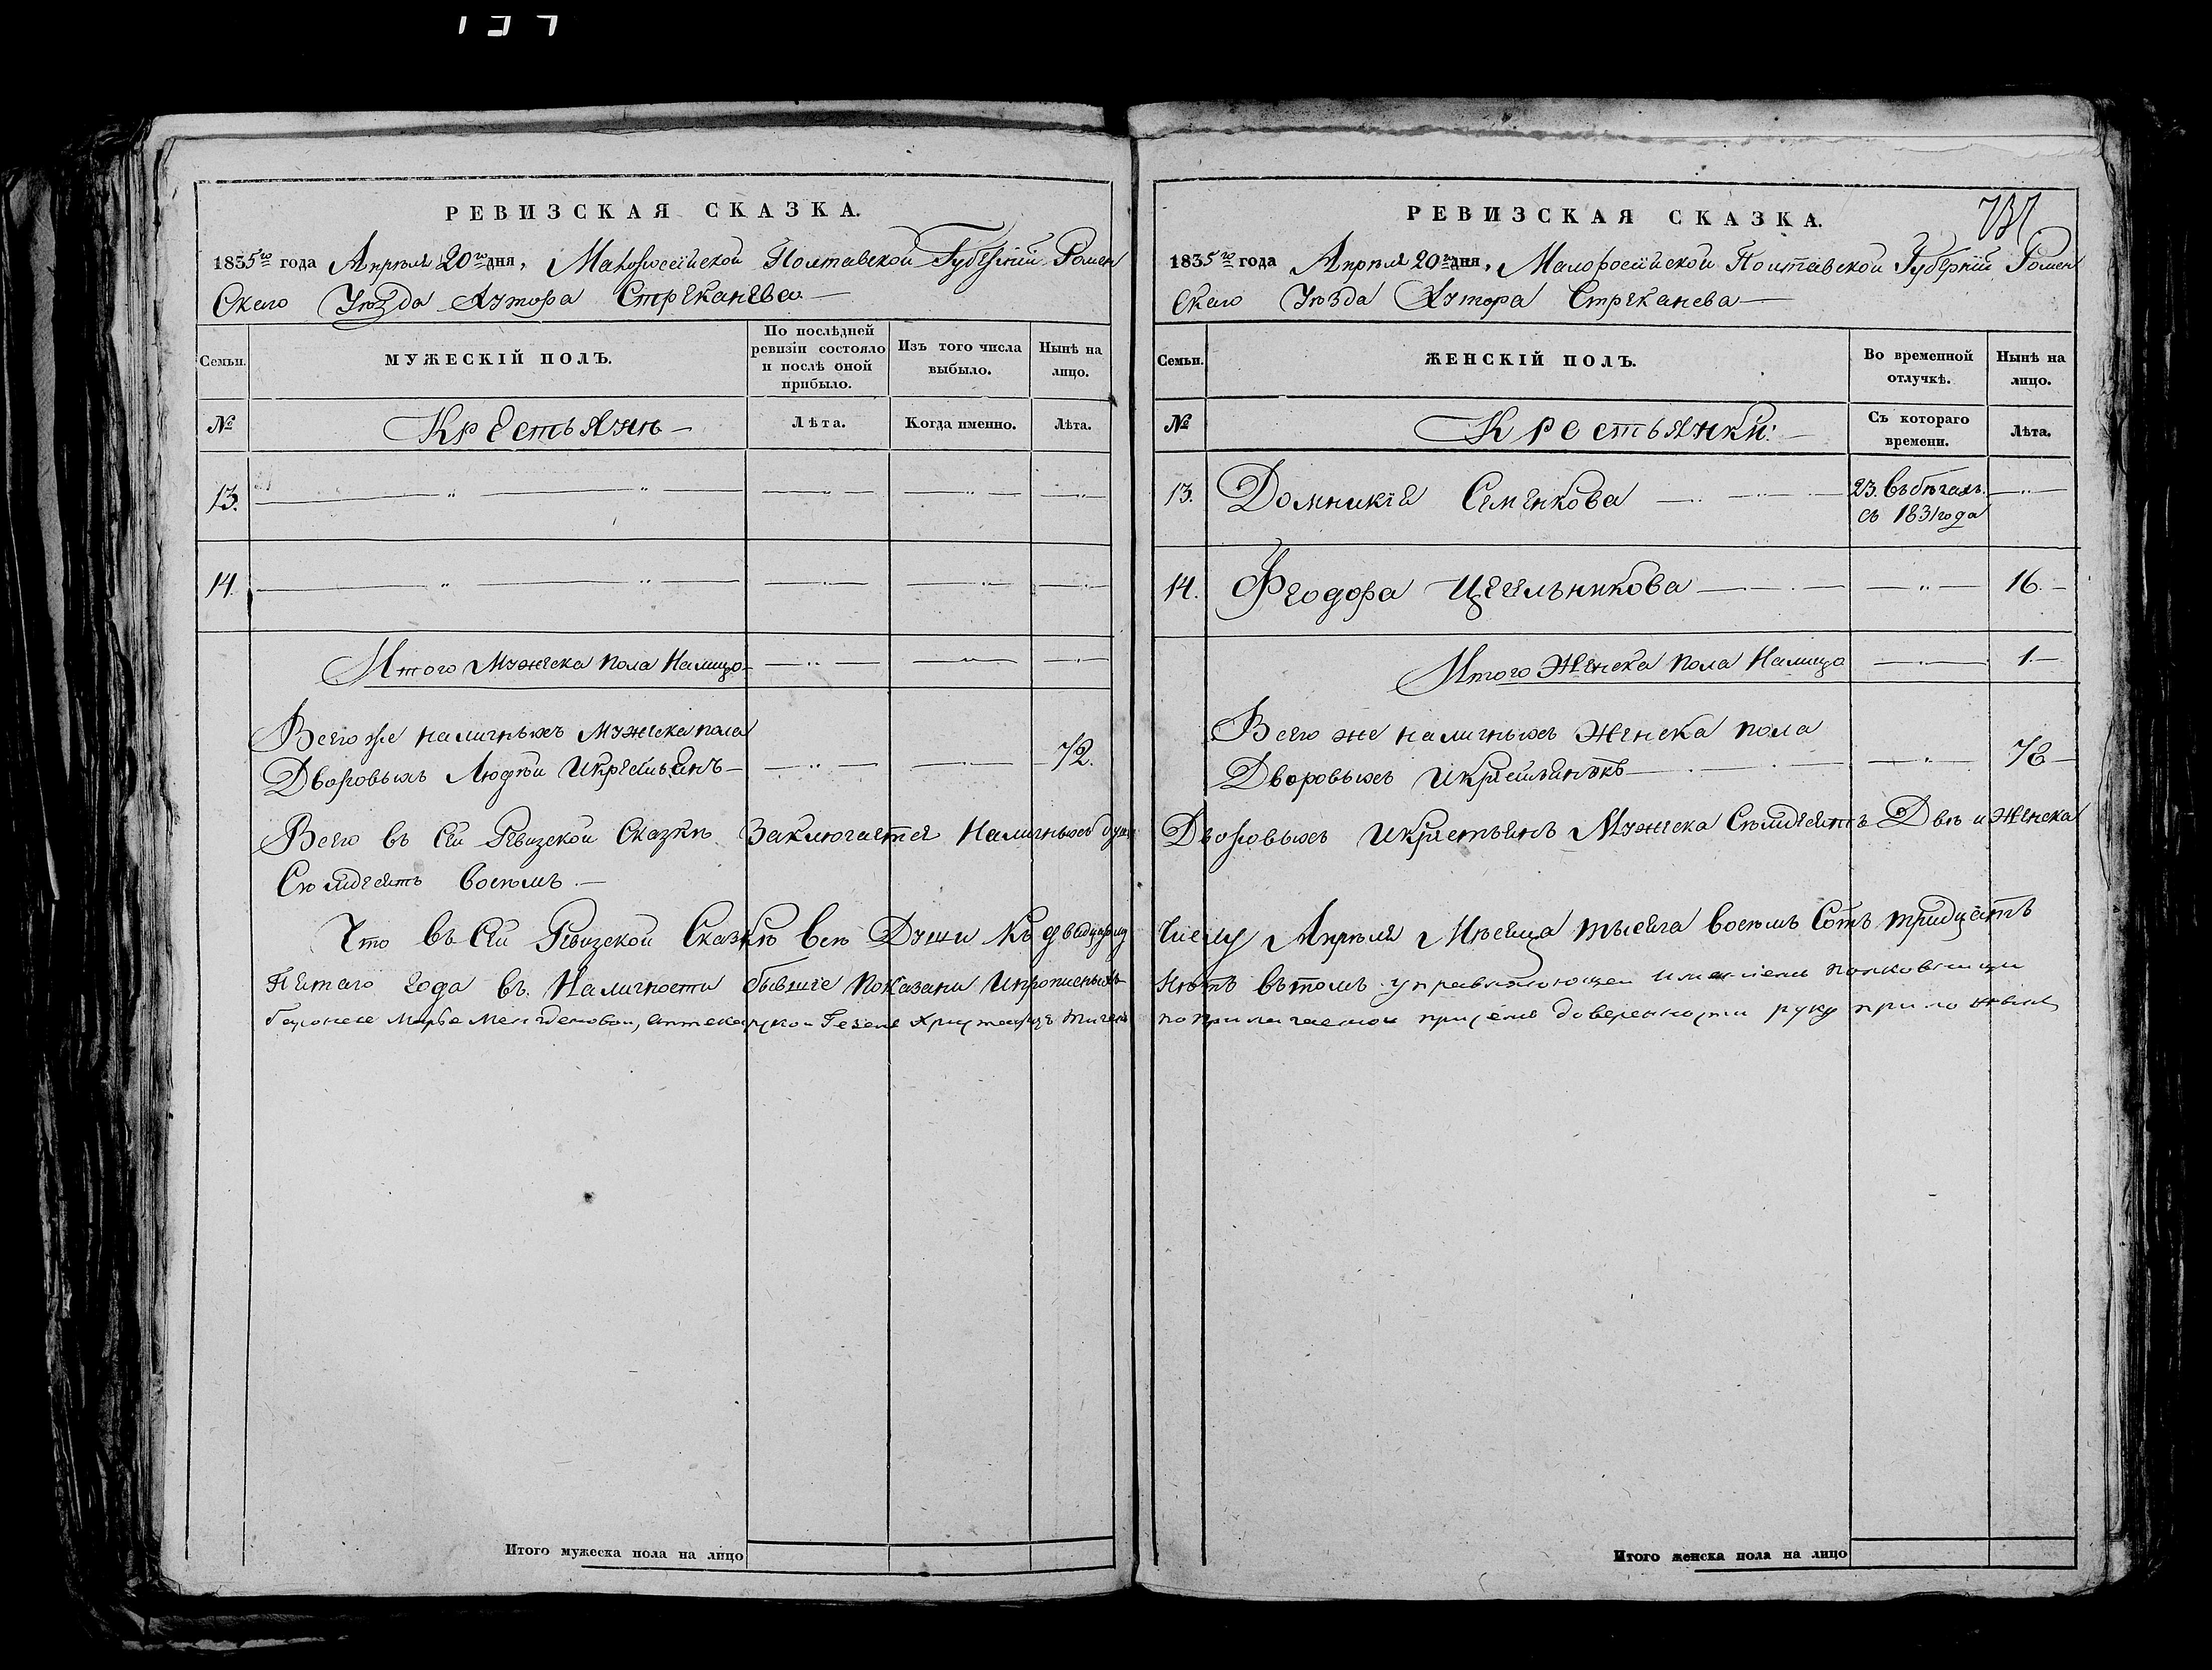 РЕВИЗСКАЯ СКАЗКА.
1835го года Апреля 20го дня, Малоросийской Полтавской Губернии Ромен
Скаго Уезда Хутора Стреканева
Семьи.
МУЖЕСКІЙ ПОЛЪ.
По послѣдней ревизіи состояло и послѣ оной прибыло.
Изъ того числа выбыло.
Нынѣ на лицо.
№
Крестьянъ
Лѣта.
Когда именно.
Лѣта.
13.
14.
Итого Мужеска пола Налицо
Всего же наличныхъ Мужеска пола
Дворовыхъ Людей Икрестьянъ
72.
Всего въ Сей Ревизской Сказкѣ Заключается Наличныхъ душъ
Семдесятъ восемъ.
Что въ Сей Ревизской Сказкѣ всѣ Души Къ
Пятаго года въ Наличности бывшіе показаны Ипрописныхъ
Итого мужеска пола на лицо
РЕВИЗСКАЯ СКАЗКА.
737
1835го года Апреля 20го дня, Малоросийской Полтавской Губерніи Ромен
Скаго Уезда Хутора Стреканева
Семьи.
ЖЕНСКІЙ ПОЛЪ.
Во временной отлучкѣ.
Нынѣ на лицо.
№
Крестьянки
Съ котораго времени.
Лѣта.
13. Домникія Семенкова 23. въбѣгахъ
съ 1831 года
14. Феодора Цегельникова 16
Итого Женска пола Налицо 1
Всего же наличныхъ Женска пола
Дворовыхъ Икрестьянокъ 78
Дворовыхъ Икрестьянъ Мужеска Семдесятъ Двѣ и Женска
Числу Апреля Месяца тысяча восемъ Сотъ тридцать
Нѣтъ втомъ управляющей имением полковници
по прилагаемой при семъ доверенности руку приложилъ
Итого женска пола на лицо